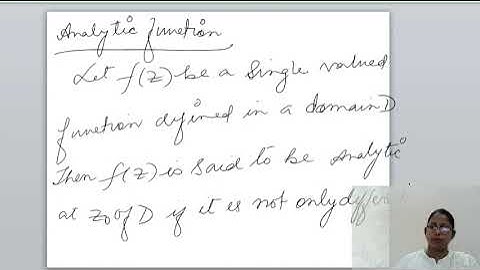 Analytic function
Let f(z) be a single valued
function defined in a domain D
Then f(z) is said to be analytic
at z0 of D if it is not only